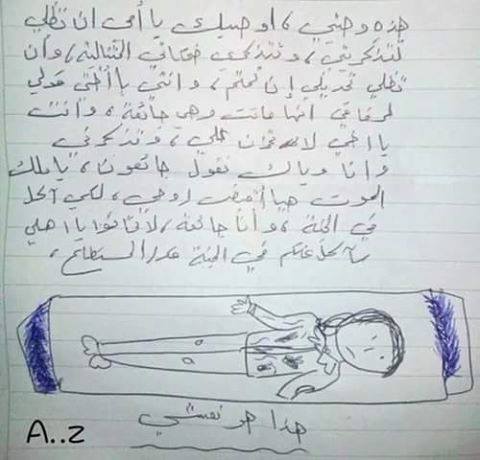 هذه وصيتي، اوصيك يا أمي ان تظلي
تتذكريني، وتتذكري ضحكاتي المتتالية، وأن
تظلي تحدقي إن نمتم، وانتي يا أختي قولي
لرفاقي أنها ماتت وهي جائعة، وأنت
يا اخي لا تحزن علي، وتذكرني
وأنا وياك نقول جائعون، يا ملك
الموت هيا أقبض روحي، لكي آكل
في الجنة، وأنا جائعة، لا تخافوا يا اهلي
سآكل عنكم في الجنة قدر المستطاع،
هذا هو نعشي
A..Z